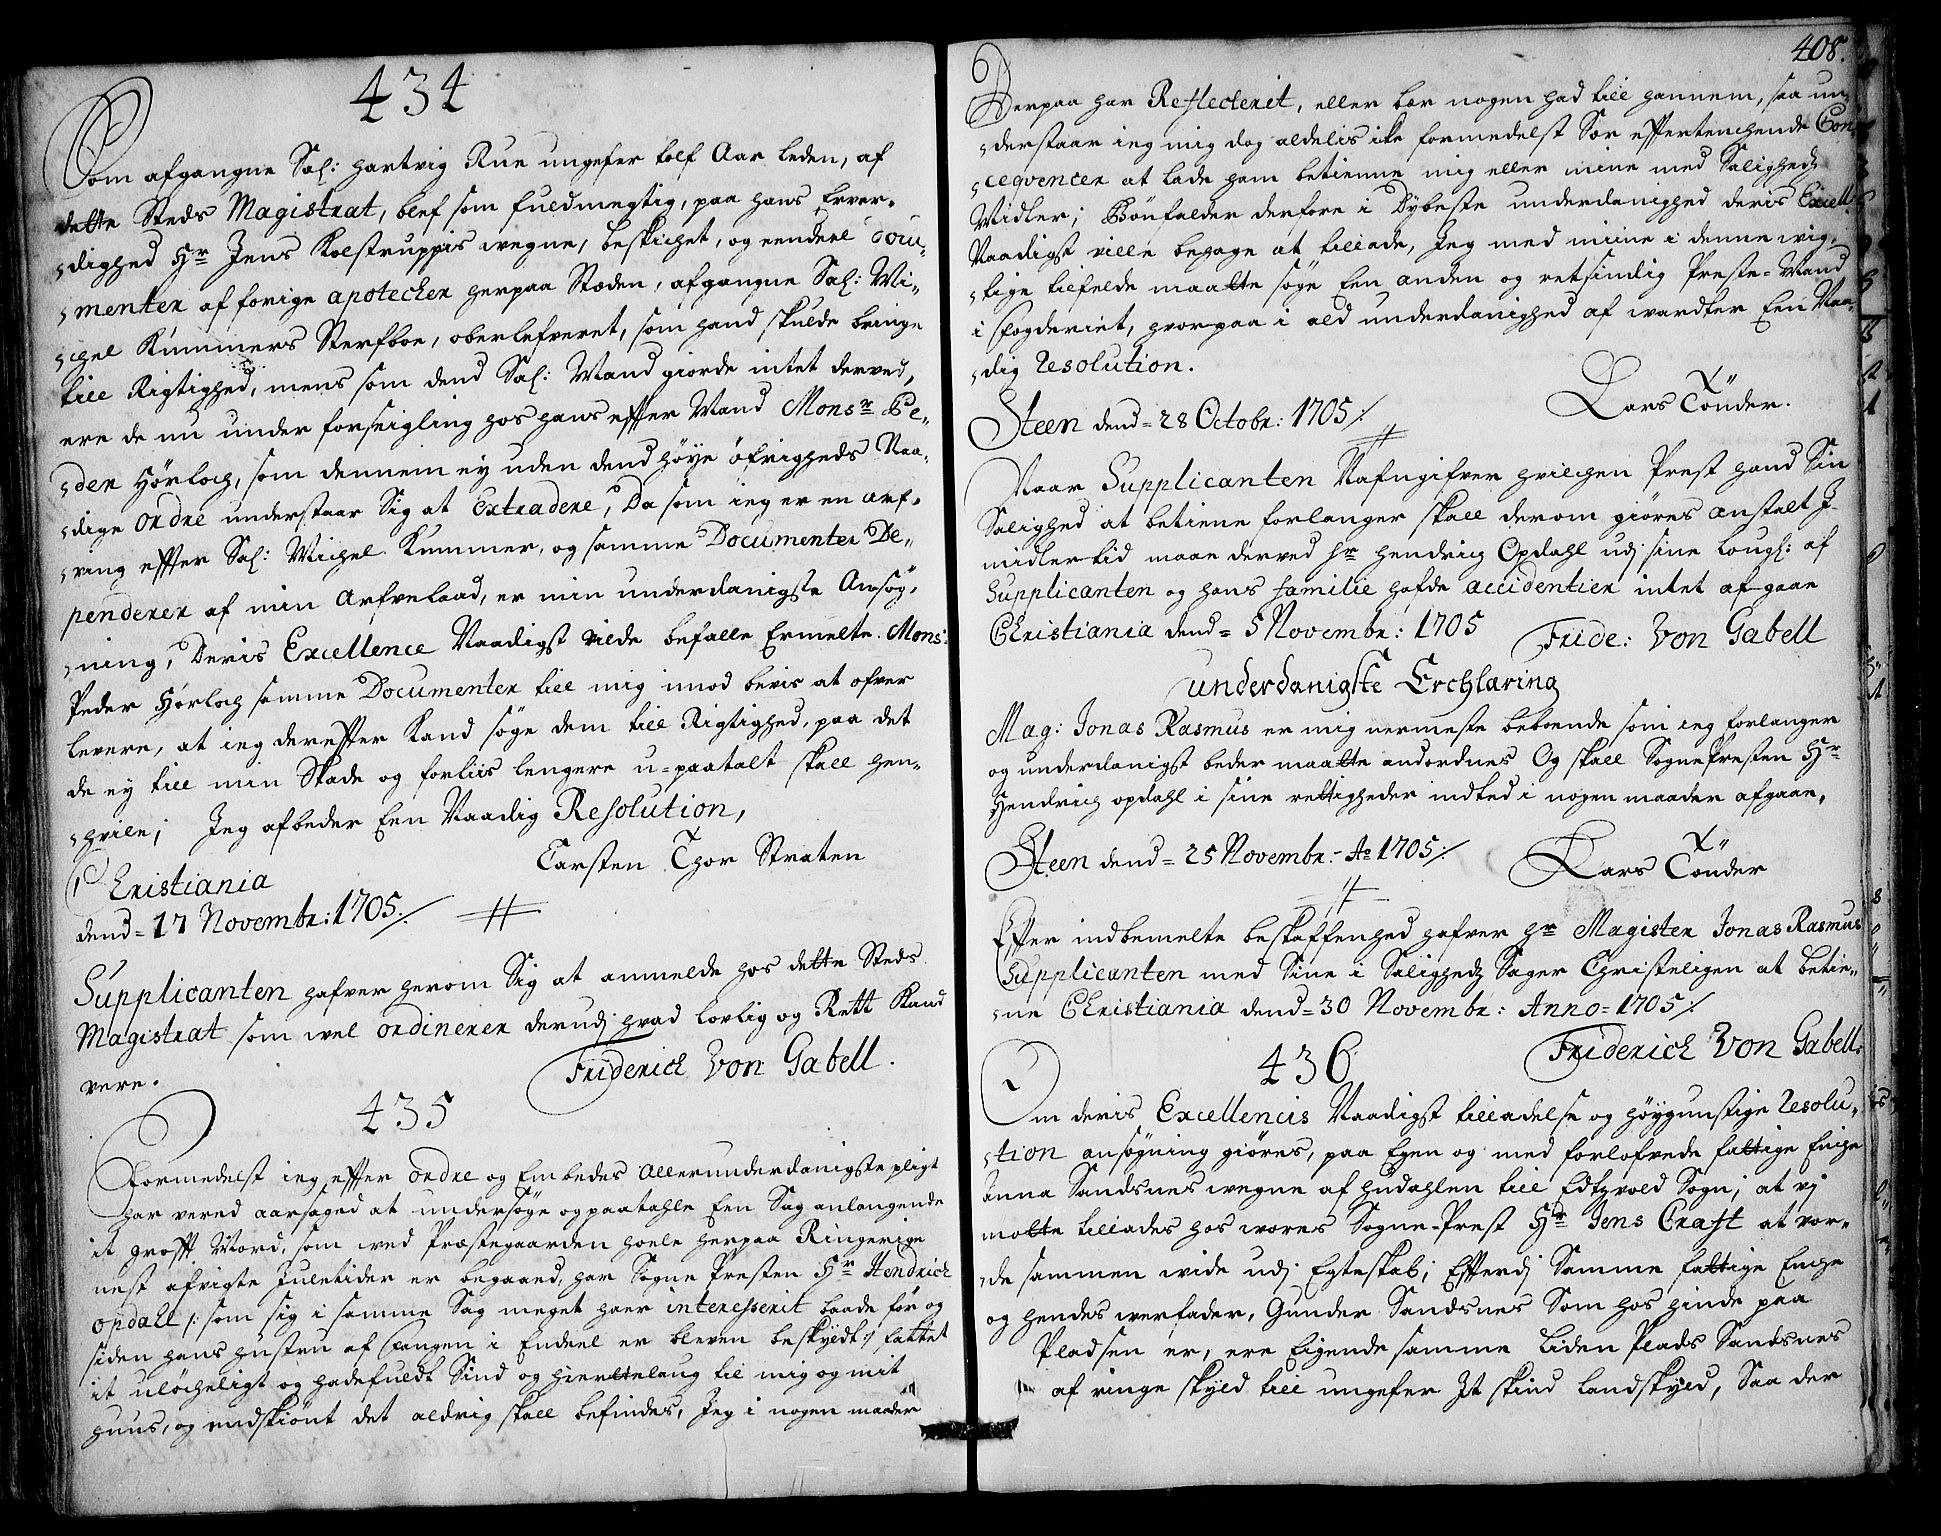 434
Som afgangne Sal: Hartvig Rue ungefer tolf Aar leden, af
dette Steds Magistrat, blef som fuldmegtig, paa hans Erver-
dighed Hr Jens Kolstruppis wegne, beskichet, og eendeel docu-
menter af forige apotecher herpaa Stæden, afgangne Sal: Mi-
chel Kummers Sterfboe, oberlefveret, som hand skulde bringe
till Rigtighed, mens som dend Sal: Mand giorde intet derved,
ere de nu under forseigling hos hans effter Mand Monsr Pe-
der Hörloch, som dennem ey uden dend höye öfrigheds Naa-
dige ordre understaar Sig at Extradere, Da som ieg er en arf-
ving effter Sal: Michel Kummer, og samme Documenter De-
penderer af min Arfvelaad, er min underdanigste Ansög-
ning, Deris Excellence Naadigst vilde befalle Ermelte Mons:
Peder Hörloch samme Documenter till mig imod bevis at ofver
levere, at ieg dereffter Kand söge dem till Rigtighed, paa det
de ey till min Skade og forliis lengere u-paatalt skall hen-
hvile; Jeg afbeder Een Naadig Resolution,
Carsten Thor Straten
Christiania
dend = 17 Novembr: 1705:/
Supplicanten hafver herom Sig at anmelde hos dette Steds
Magistrat som wel ordinerer derudj hvad lovlig og Rett Kand
vere.
Friderich Von Gabell.
435
Formedelst ieg effter ordre og Embedes allerunderdanigste pligt
har vered aarsaged at undersöge og paatahle Een Sag anlangende
it grofft Mord, som wed Præstegaarden hoele herpaa Ringerige
nest afvigte Juletider er begaaed, har Sogne Presten Hr Hendrich
opdahl /: som sig i samme Sag meget haer interesserit baade för og
siden hans hustru af fangen i Endeel er bleven beskyldt:/ fattet
it ulöcheligt og hadefuldt Sind og hiertelaug til mig og mit
huus, og endskiönt det aldrig skall befindes, Jeg i nogen maader
408.
Derpaa har Reflecterit, eller bær nogen had till hannem, saa un-
derstaar ieg mig dog aldelis icke formedelst Sær effterteenchende Con-
ceqvencer at lade ham betienne mig eller mine med Saligheds
Midler; Bönfalder derfore i Dybeste underdanighed deris Excell:
Naadigst ville behage at tillade, Jeg med mine i denne vig-
tige tilfelde maatte söge Een anden og retsindig Preste-Mand
i fogderiet, hvorpaa i ald underdanighed af wardter Een Naa-
dig Resolution.
Lars Tönder.
Steen dend = 28 Octobr: 1705:/
Naar Supplicanten Nafngifver hvilchen Prest hand Sin
Salighed at betiene forlanger skall derom giöres anstalt J-
midlertid maae derved hr Hendrich Opdahl udj sine lougl: af
Supplicanten og hans familie hafde accidentier intet afgaae
Christiania dend = 5 Novembr: 1705
Fride: Von Gabell
underdanigste Erchlaring
Mag: Jonas Rasmus er mig nermeste beboende som ieg forlanger
og underdanigst beder maatte andordnes Og skall SognePresten Hr
Hendrich opdahl i sine rettigheder indted i nogen maader afgaae,
Steen dend = 25 Novembr: Ao 1705:/
Lars Tönder
Effter indbemelte beskaffenhed hafver hr Magister Jonas Rasmus
Supplicanten med Sine i Saligheds Sager Christeligen at betie-
ne Christiania dend = 30 Novembr: Anno = 1705:/
Friderich Von Gabell.
436
Om deris Excellencis Naadigst tilladelse og höygunstige Resolu-
tion ansögning giöres, paa Egen og med forlofvede fattige Enche
Anna Sandsnes wegne af Hudahlen till Edtzvold Sogn; at vj
motte tillades hos wores Sogne-Prest Hr Jens Craft at vor-
de sammen wide udj Egteskab; Efferdj Samme fattige Enche
og hendes werfader, Gunder Sandsnes Som hos hinde paa
Pladsen er, ere Eigende samme liden Plads Sandsnes
af ringe skyld till ungefer Jt skind landskyld, Saa der